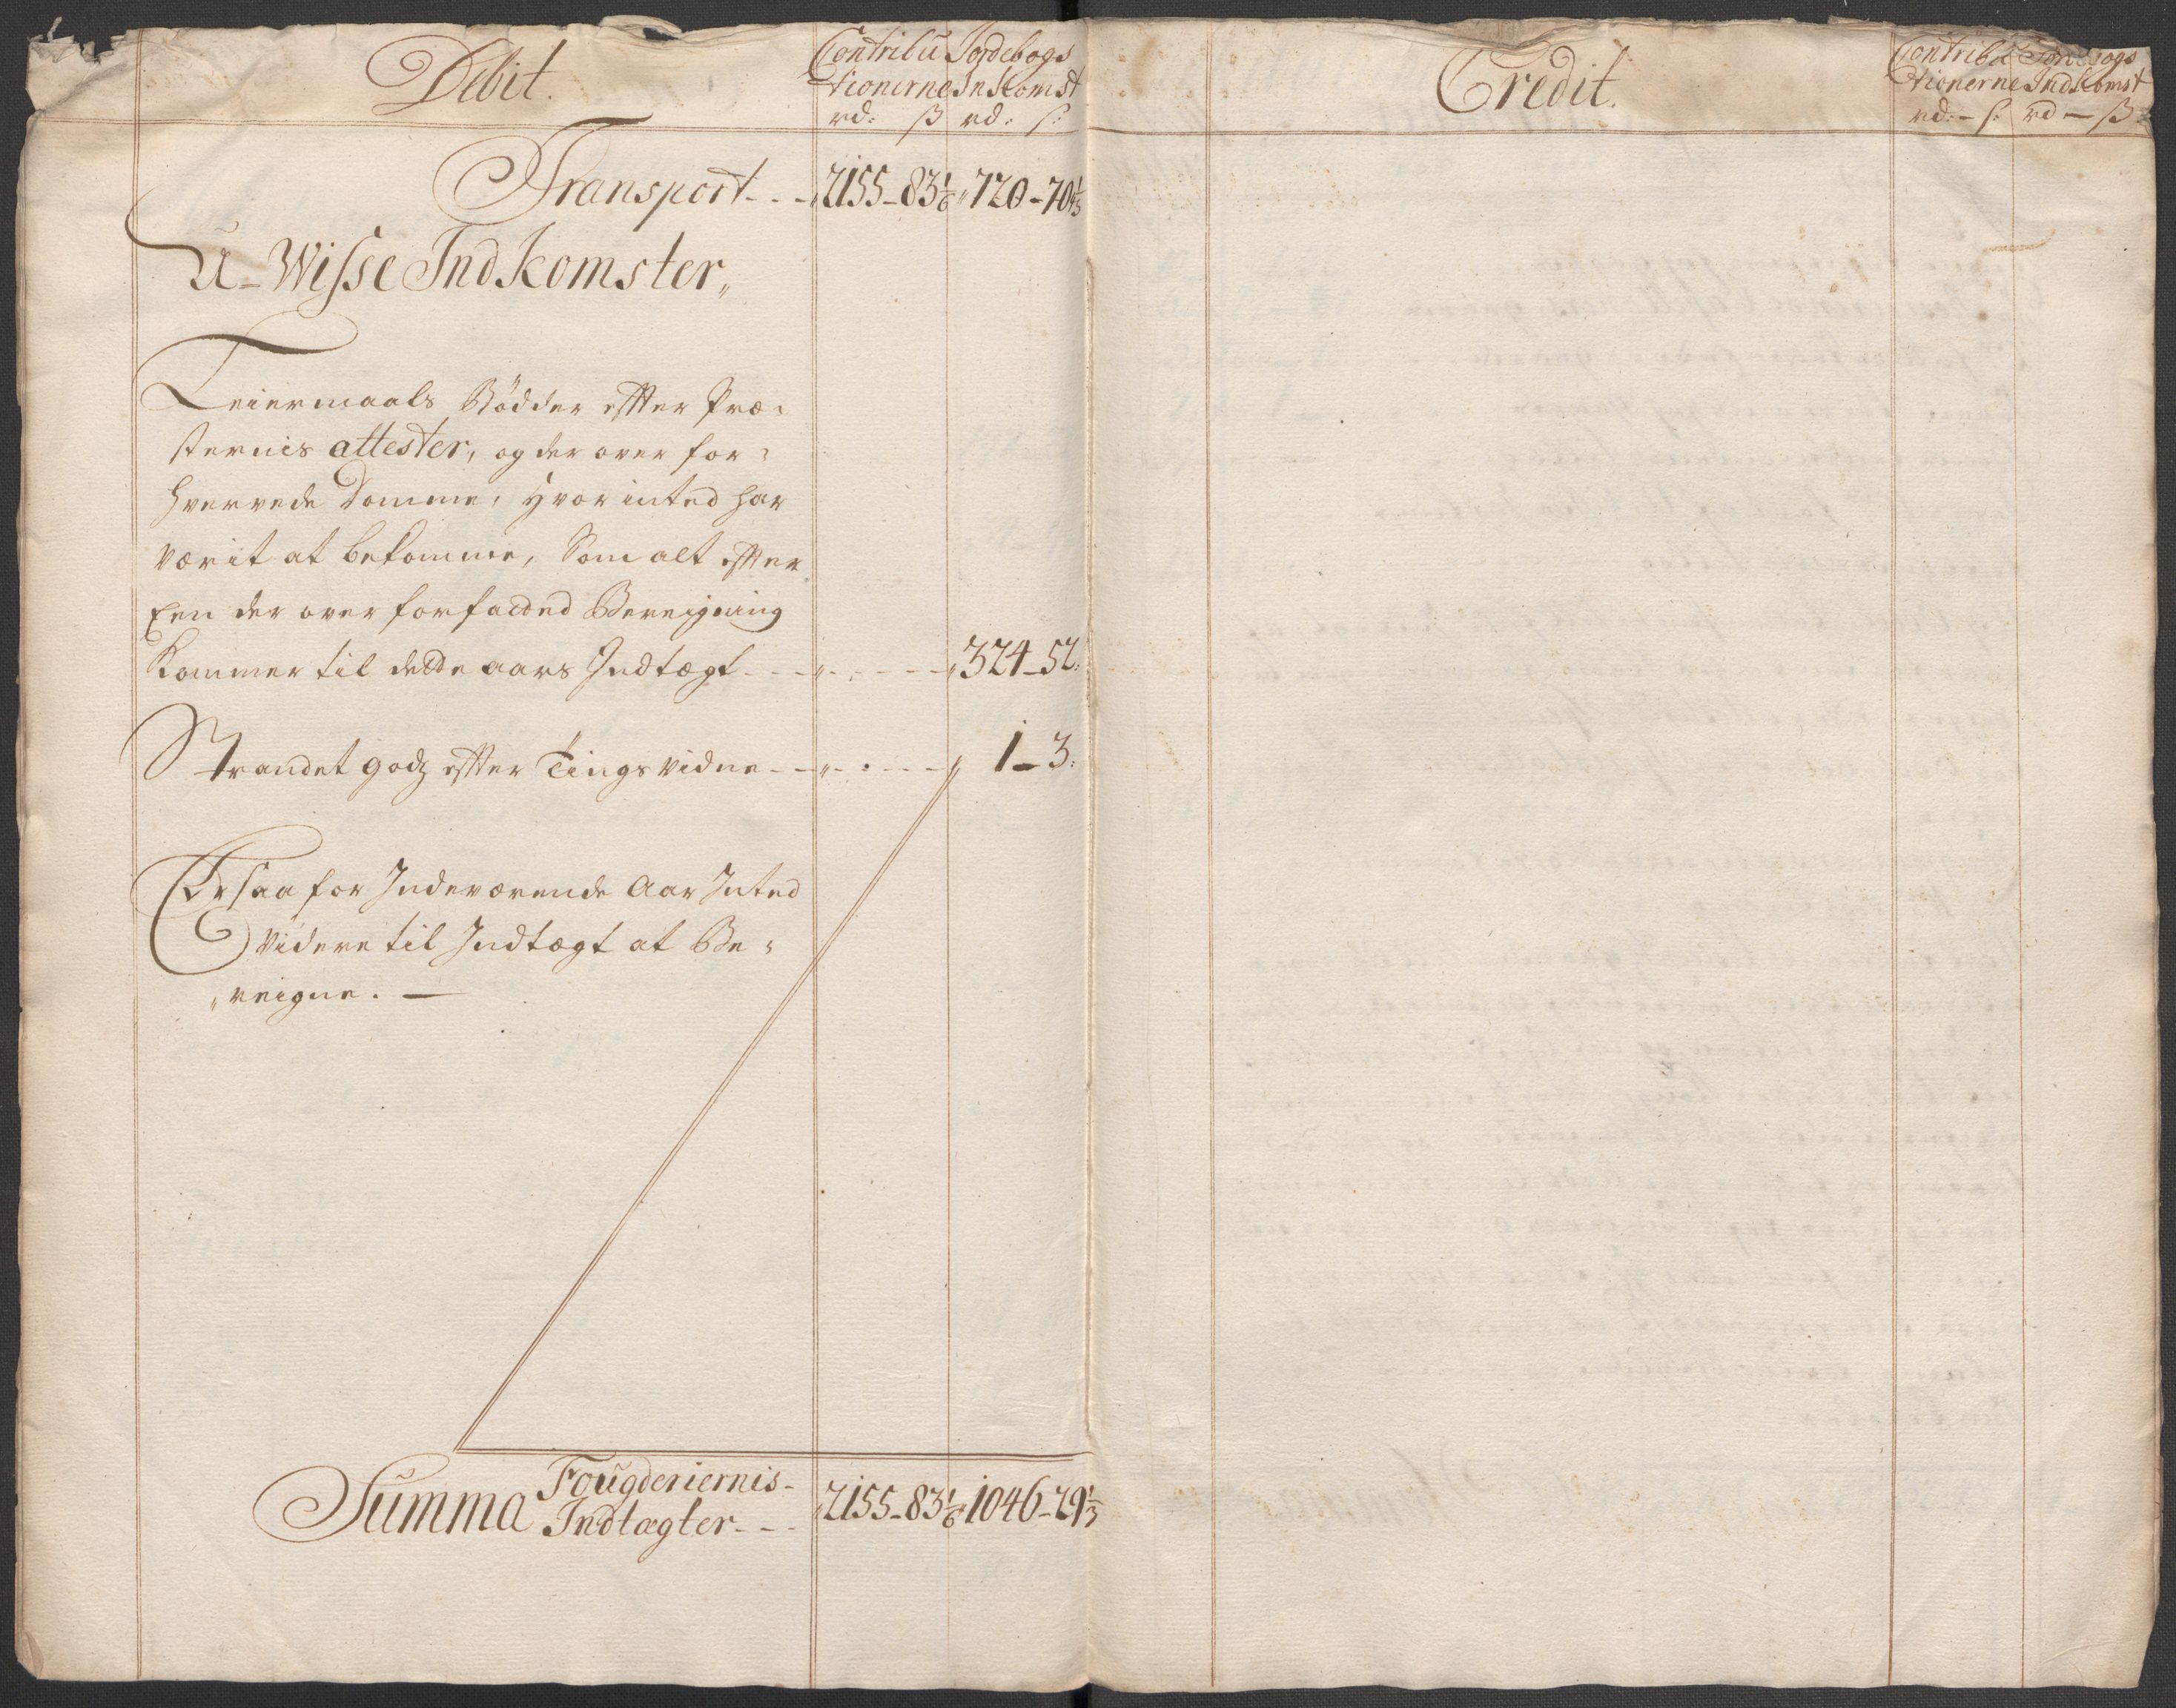 Debit.
Contribu Jordebogs
tionerne IndKomst
rd: ß rd: ß:
Transport - - - 2155 - 83 1/6 720 - 70 1/3
U-Wisse IndKomster,,
Leiermaals Bødder effter Præ-
sternis attester, og der over for-
hvervede Domme, Hvor inted har
værit at bekomme, Som alt effter
Een der over forfatted Bereigning
Kommer til dette aars Indtægt - - - 324 - 52:
Strandet godz effter Tings vidne - - - 1 - 3:
Er saa for Indeværende Aar Inted
videre til Indtægt at Be-
reigne. —
Summa Fougderiernis-
Indtægter - - - 2155 - 83 1/6 1046 - 29 1/3
Credit.
Contribu Jordebogs
tionerne IndKomst
rd: - ß: rd - ß